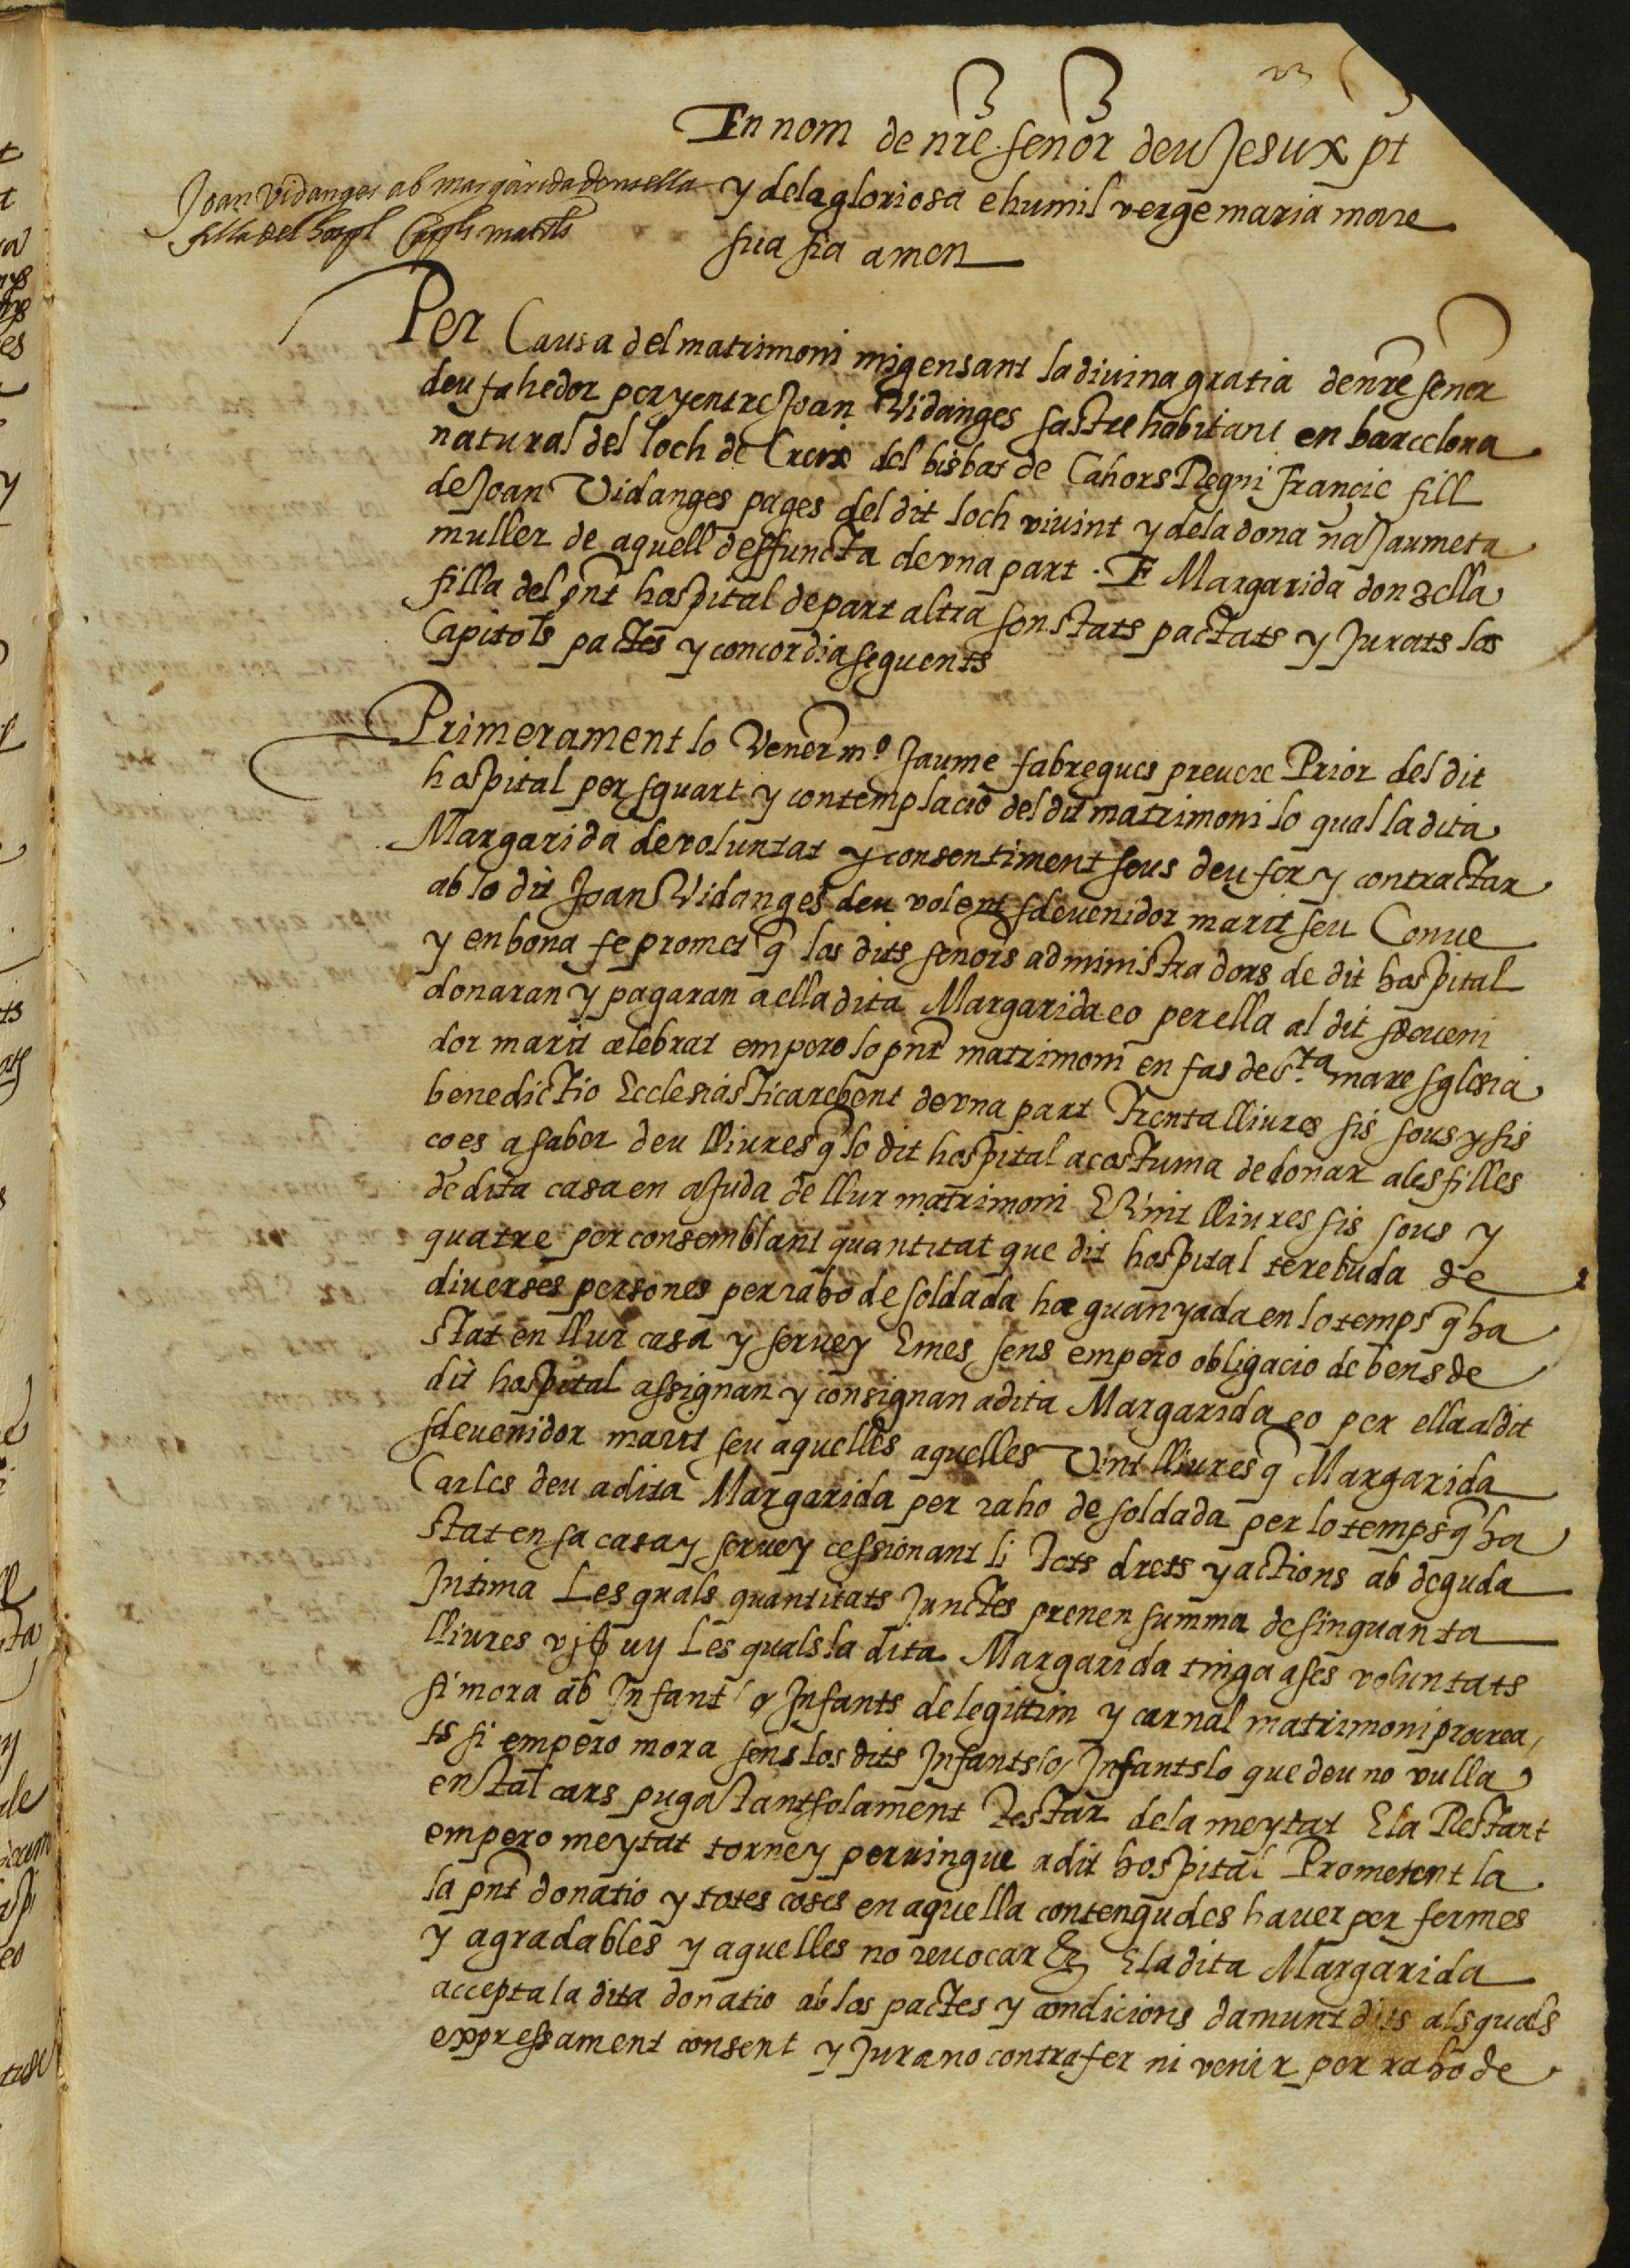 En nom de nr̃e señor deu Jesu xp̃t
y dela gloriosa e humil verge maria mare
sua sia amen
Joan Vidanges ab margarida donsella
filla del hospl Capls matrls
Per Causa del matrimoni migensant la diuina gratia de nr̃e señor
deu fahedor per y entre Joan Vidanges sastre habitant en barcelona
natural del loch de Creix del bisbat de Cahors Regni francie fill
de Joan Vidanges pages del dit loch viuint y dela dona na Jaumeta
muller de aquell deffuncta de vna part . E Margarida donzella
filla del pñt hospital de part altra son stats pactats y Jurats los
Capitols pactes y concordia seguents
Primerament lo Vener m.º Jaume fabregues preuere Prior del dit
hospital per sguart y contemplacio del dit matrimoni lo qual la dita
Margarida de voluntat y consentiment seus deu fer y contractar
ab lo dit Joan Vidanges deu volent sdeuenidor marit seu Conue
y en bona fe promet q̃ los dits señors administradors de dit hospital
donaran y pagaran a ella dita Margarida eo per ella al dit sdeueni
dor marit celebrat empero lo pñt matrimoni en fas de S.ta mare sglesia
benedictio Ecclesiastica rebent de vna part Trenta lliures sis sous y sis
co es a saber deu lliures q̃ lo dit hospital acostuma de donar a les filles
de dita casa en ajuda de llur matrimoni E Vint lliures sis sous y
quatre per consemblant quantitat que dit hospital te rebuda de
diuerses persones per raho de soldada ha guanyada en lo temps q̃ ha
stat en llur casa y seruey E mes sens empero obligacio de bens de
dit hospital assignan y consignan a dita Margarida eo per ella al dit
sdeuenidor marit seu aquelles aquelles Vint lliures q̃ Margarida
Carles deu a dita Margarida per raho de soldada per lo temps q̃ ha
stat en sa casa y seruey cessionant li Tots drets y actions ab deguda
Intima Les quals quantitats Junctes prenen summa de sinquanta
lliures vj ß uy Les quals la dita Margarida tinga a ses voluntats
si mora ab Infant o Infants de legittim y carnal matrimoni procrea
ts si empero mora sens los dits Infants lo Infants lo que deu no vulla
en Tal cars puga Tant solament Testar de la meytat E la Restant
empero meytat torne y peruingue a dit hospital Prometent la
la pñt donatio y totes coses en aquella contengudes hauer per fermes
y agradables y aquelles no reuocar &c E la dita Margarida
accepta la dita donatio ab los pactes y condicions damunt dits als quals
expressament consent y Jura no contrafer ni venir per raho de